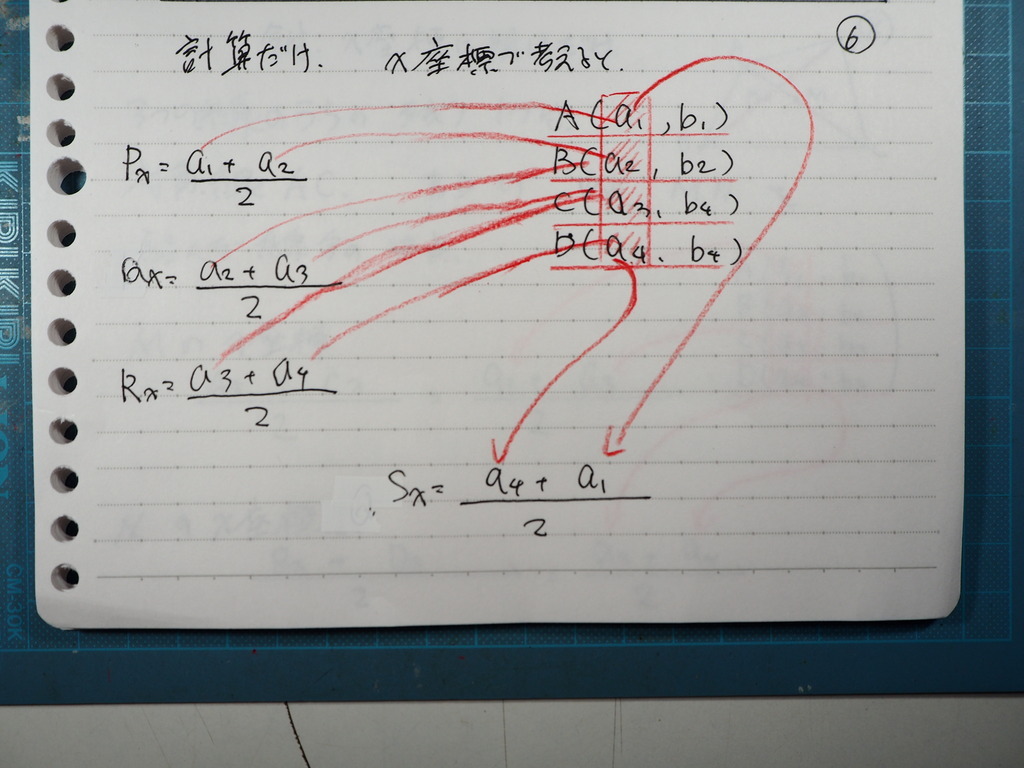 ⑥
計算だけ. x座標で考えると.
A(a₁, b₁)
B(a₂, b₂)
C(a₃, b₄)
D(a₄. b₄)
Pₓ= a₁ + a₂
2
Qₓ= a₂ + a₃
2
Rₓ= a₃ + a₄
2
Sₓ= a₄ + a₁
2
CM-39K